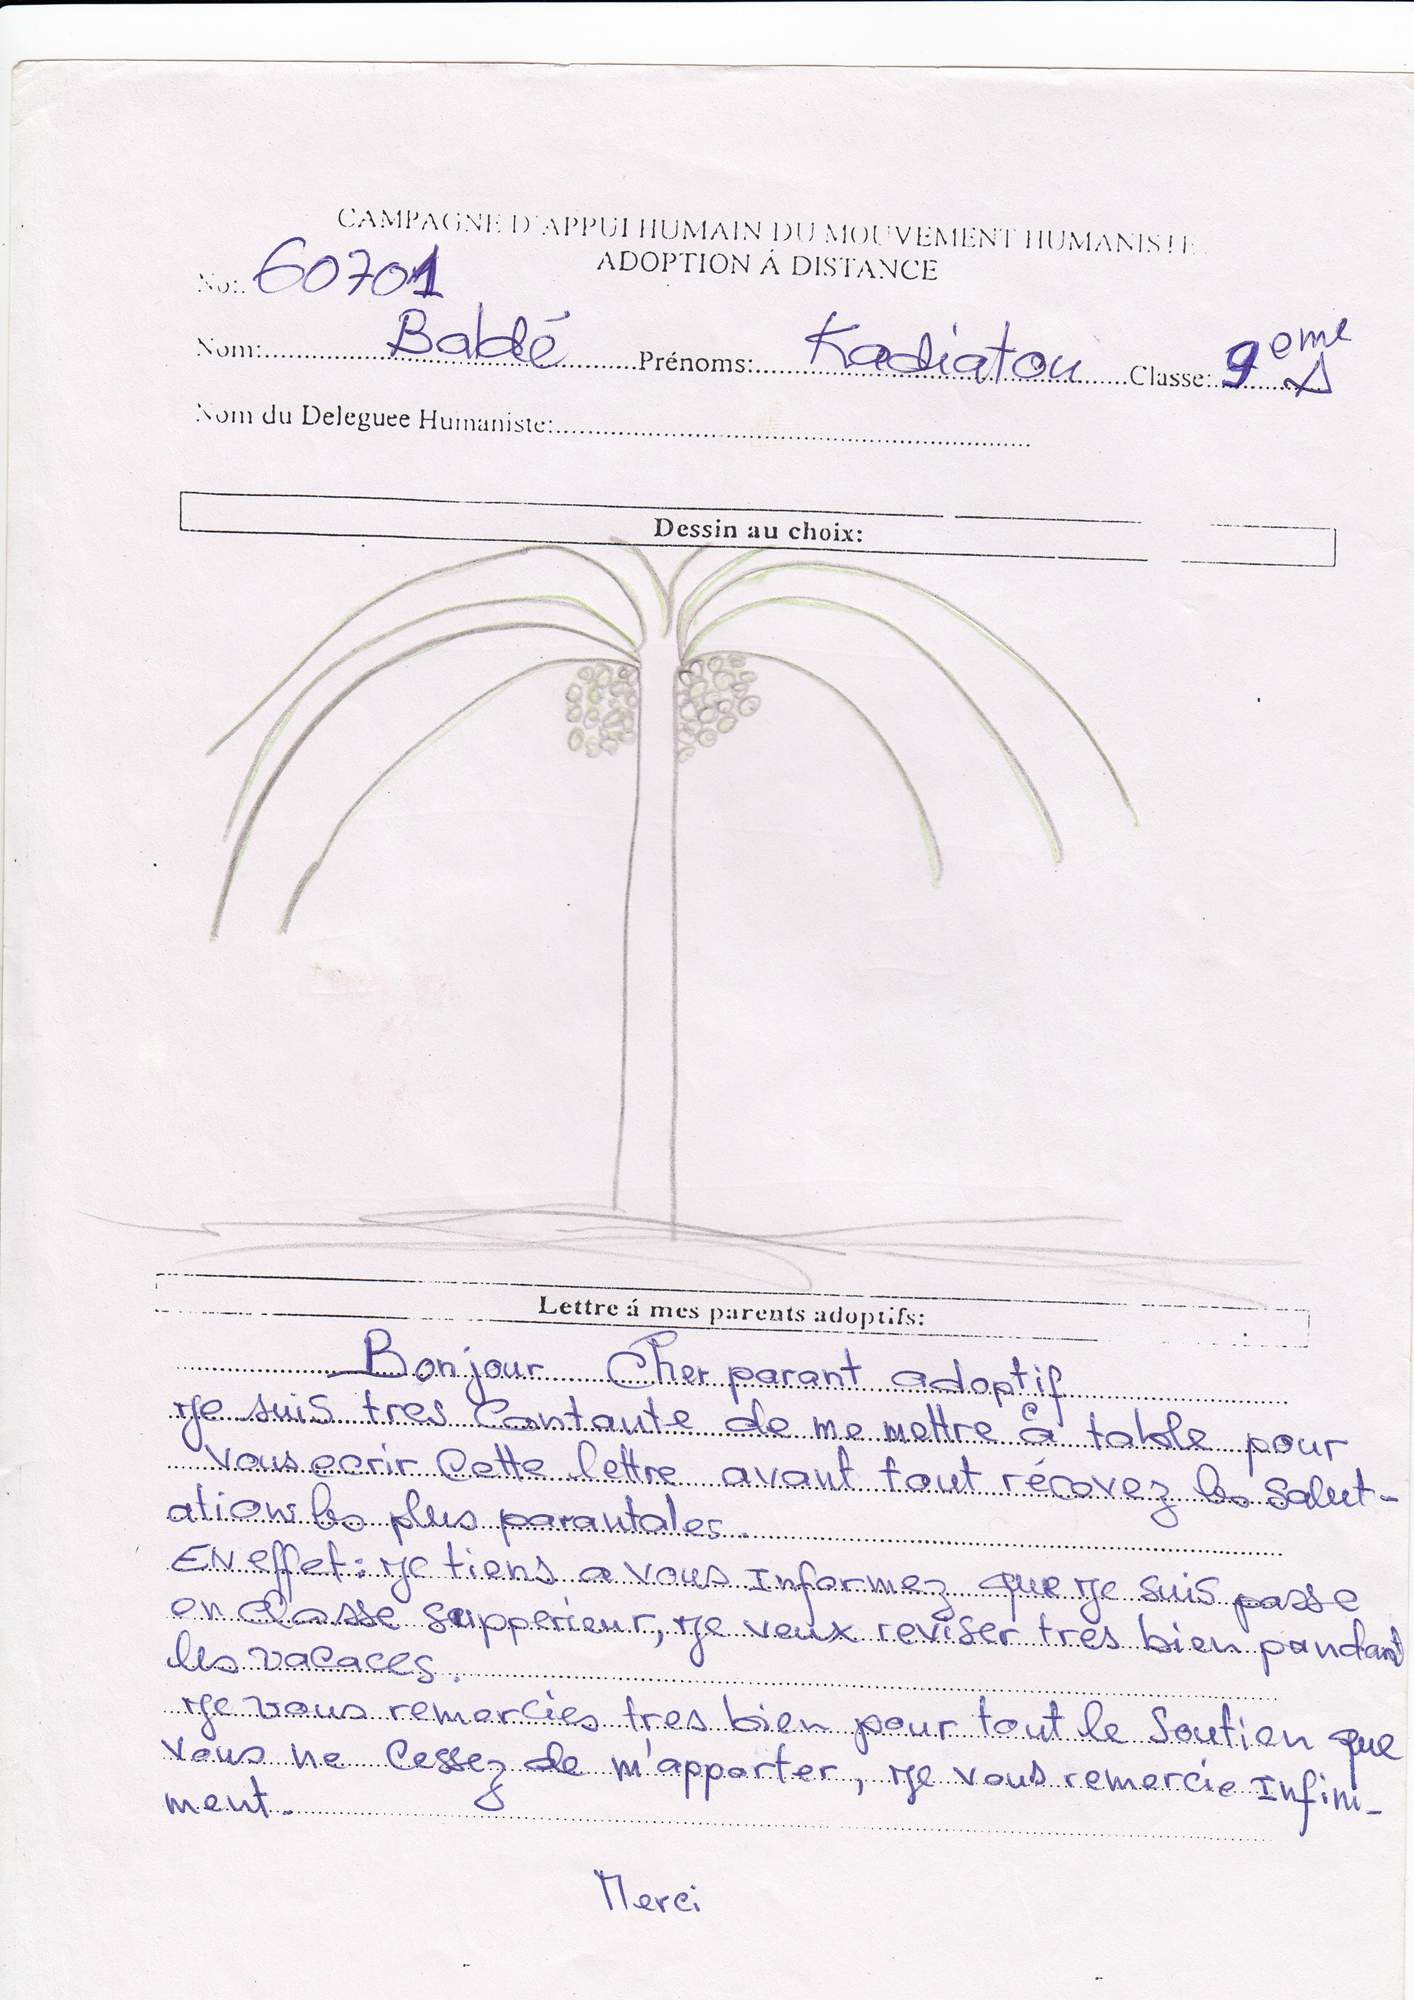 CAMPAGNE D'APPUI HUMAIN DU MOUVEMENT HUMANISTE
ADOPTION Á DISTANCE
No: 60701
Nom: Baldé Prénoms: Kadiatou Classe: 9eme
Nom du Deleguee Humaniste:
Dessin au choix:
Lettre á mes parents adoptifs:
Bonjour Cher parant adoptif
Je suis tres Contante de me mettre à table pour
vous ecrir Cette lettre avant tout récevez les Salut-
ations les plus parantales.
EN effet: je tiens a vous Informez que je suis passe
en Classe supperieur, je veux reviser tres bien pandant
les vacaces.
Je vous remercies tres bien pour tout le Soutien que
vous ne Cessez de m'apporter, je vous remercie Infini-
ment.
Merci